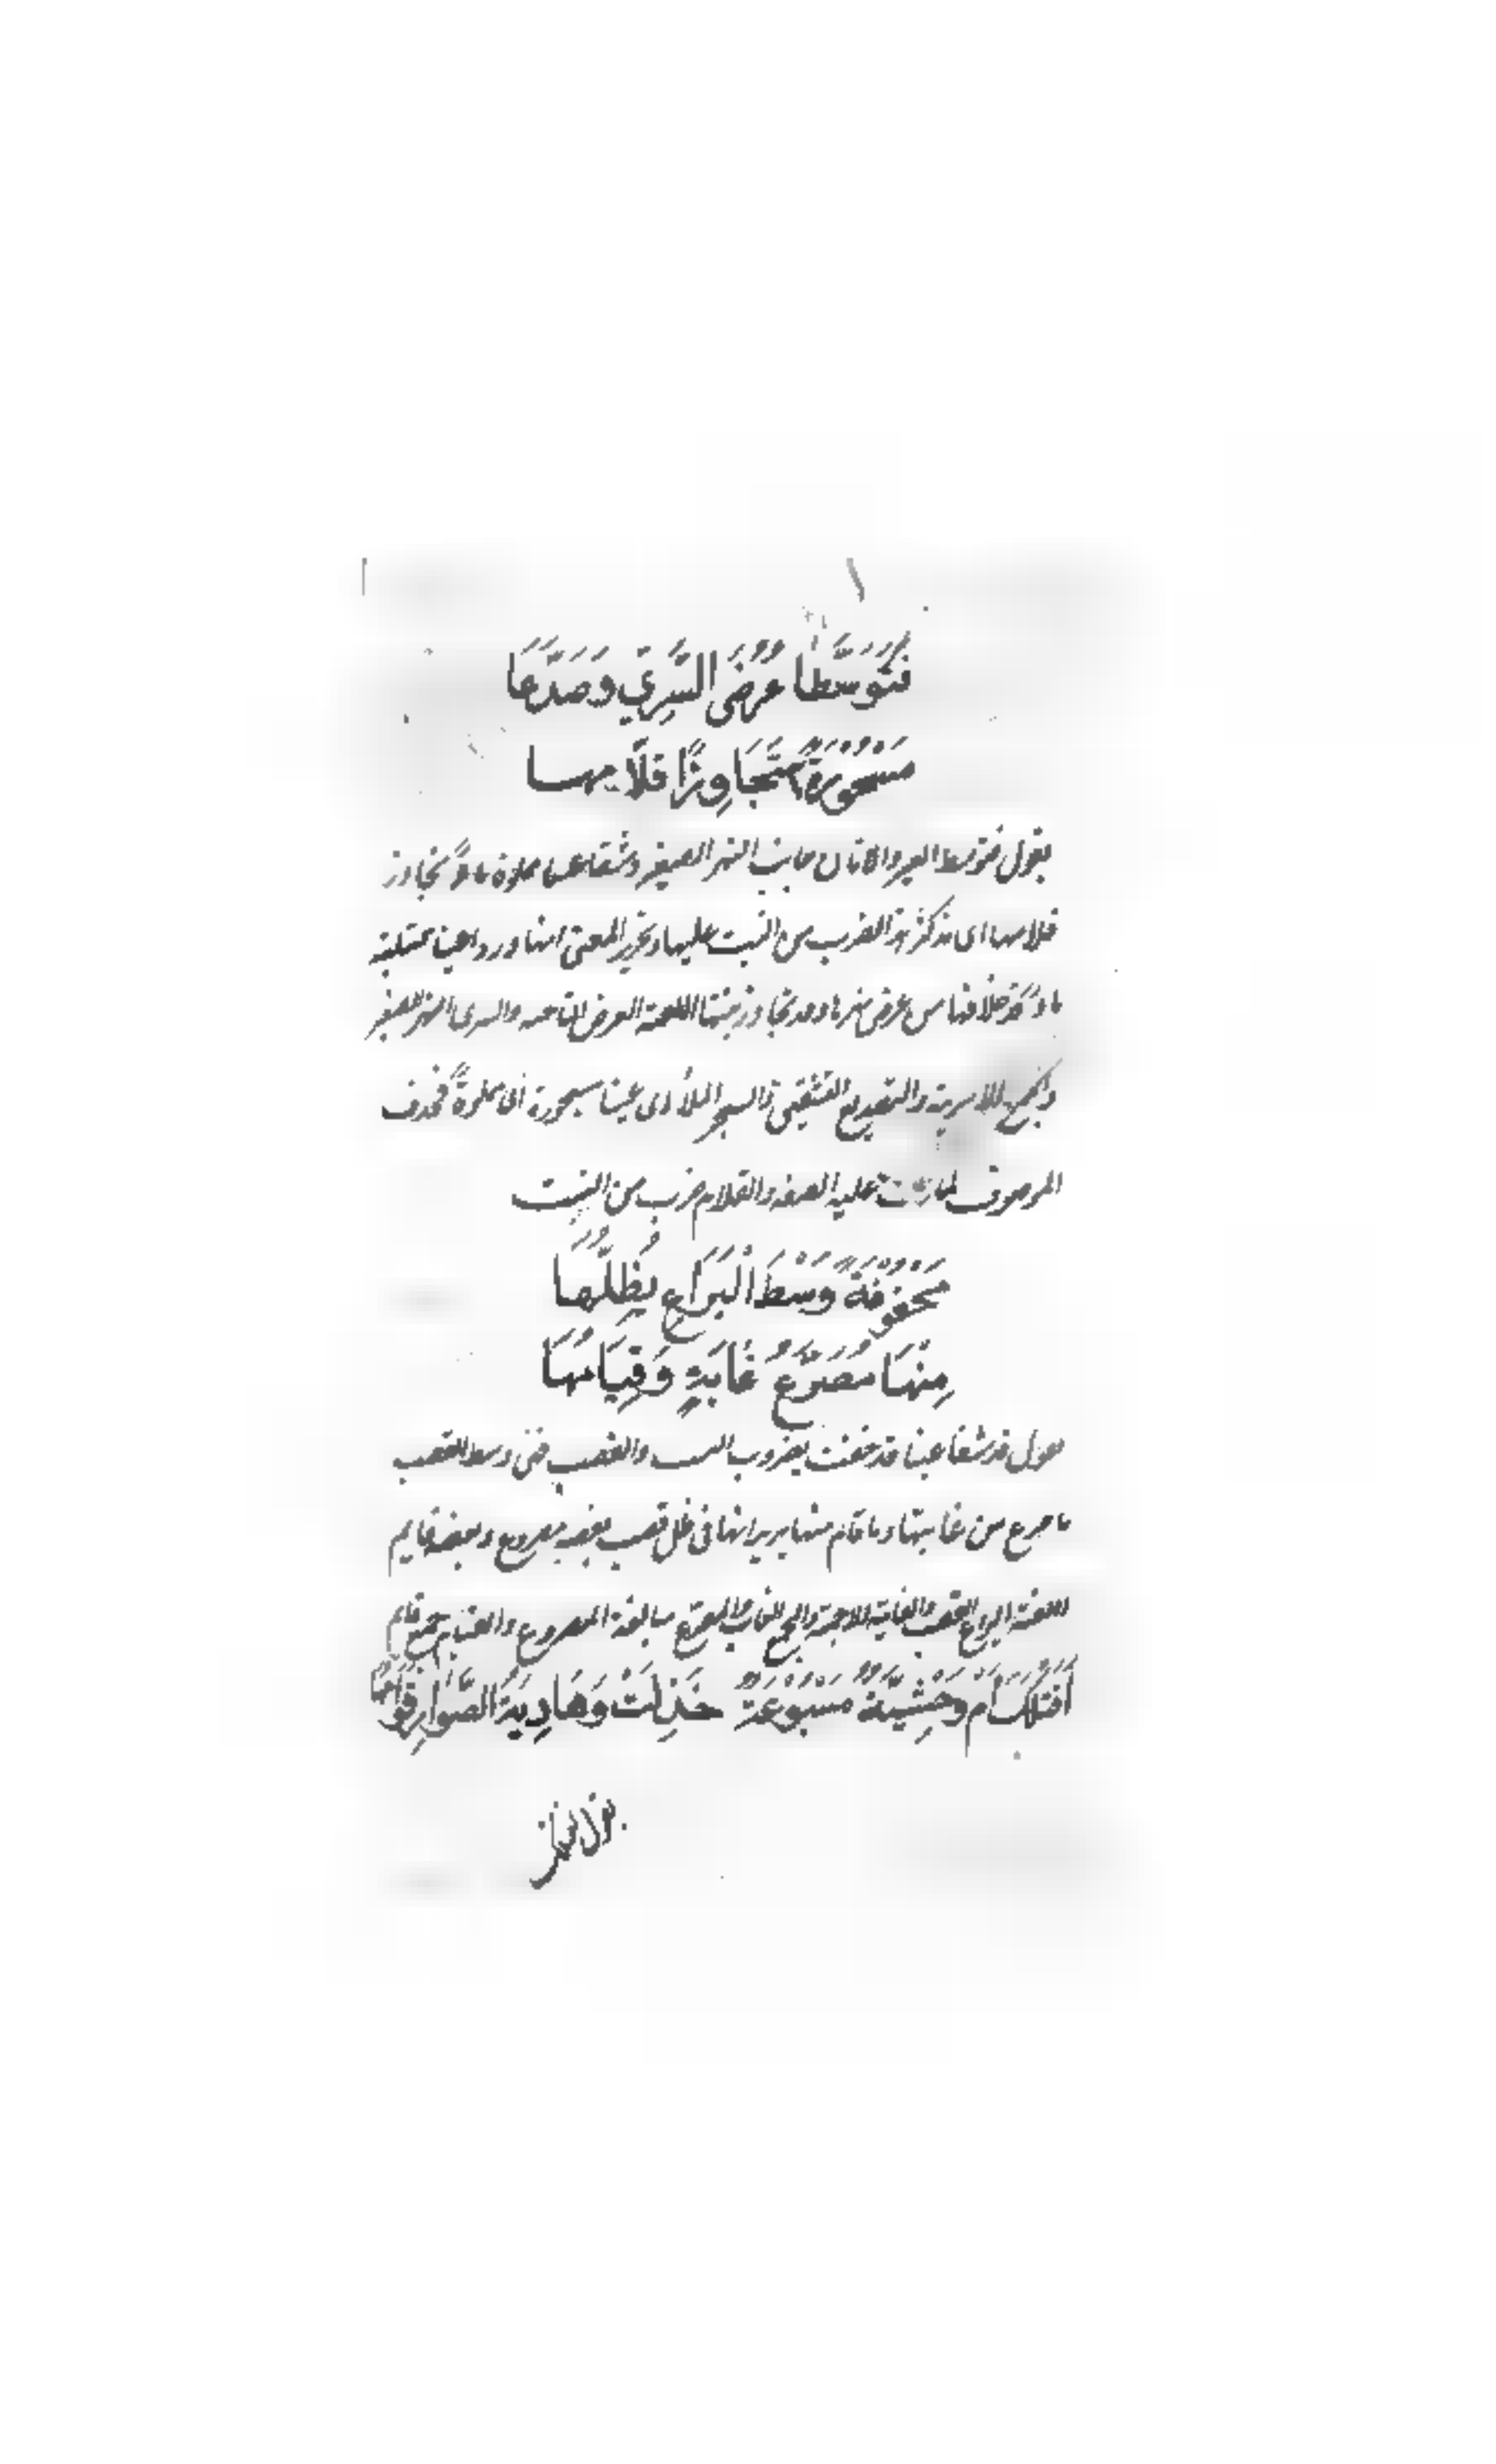 فَتَوَسَّطَا عُرْضَ السَّرِيِّ وَصَدَّعَا
مَسْجُورَةً مُتَجَاوِرًا قُلَّامُهَا
يقول فتوسط العير والاتان جانب النهر الصغير وشقا عينا مملوة ماءً تجاوز
قلامها اى هذا الضرب من النبت عليها وتحرير المعنى انهما وردا عينا ممتلية
ماءً من عرض نهرها وقد تجاوز نبتها اللغة العرض الناحية والسرى النهر الصغير
والجمع الاسرية والتصديع التشقيق والسجر الملأ اى عينا مسجورة اى مملوةً فحذف
الموصوف لما دلت عليه الصفة والقلام ضرب من النبت
مَحْفُوفَةً وَسْطَ الْيَرَاعِ يُظِلُّهَا
مِنْهَا مُصَرَّعُ غَابَةٍ وَقِيَامُهَا
يقول قد شقا عينا قد حفت بضروب النبت والقصب فهى وسط القصب
ما صرع من غابتها وما قام منها يريد انها فى ظل قصب بعضه مصروع وبعضه قايم
اللغة اليراع القصب والغابة الاجمة والجمع الغاب والمصرع مبالغة المصروع والقيام جمع قايم
أَفَتِلْكَ أَمْ وَحْشِيَّةٌ مَسْبُوعَةٌ خَذَلَتْ وَهَادِيَةُ الصِّوَارِ قِوَامُهَا
يقول